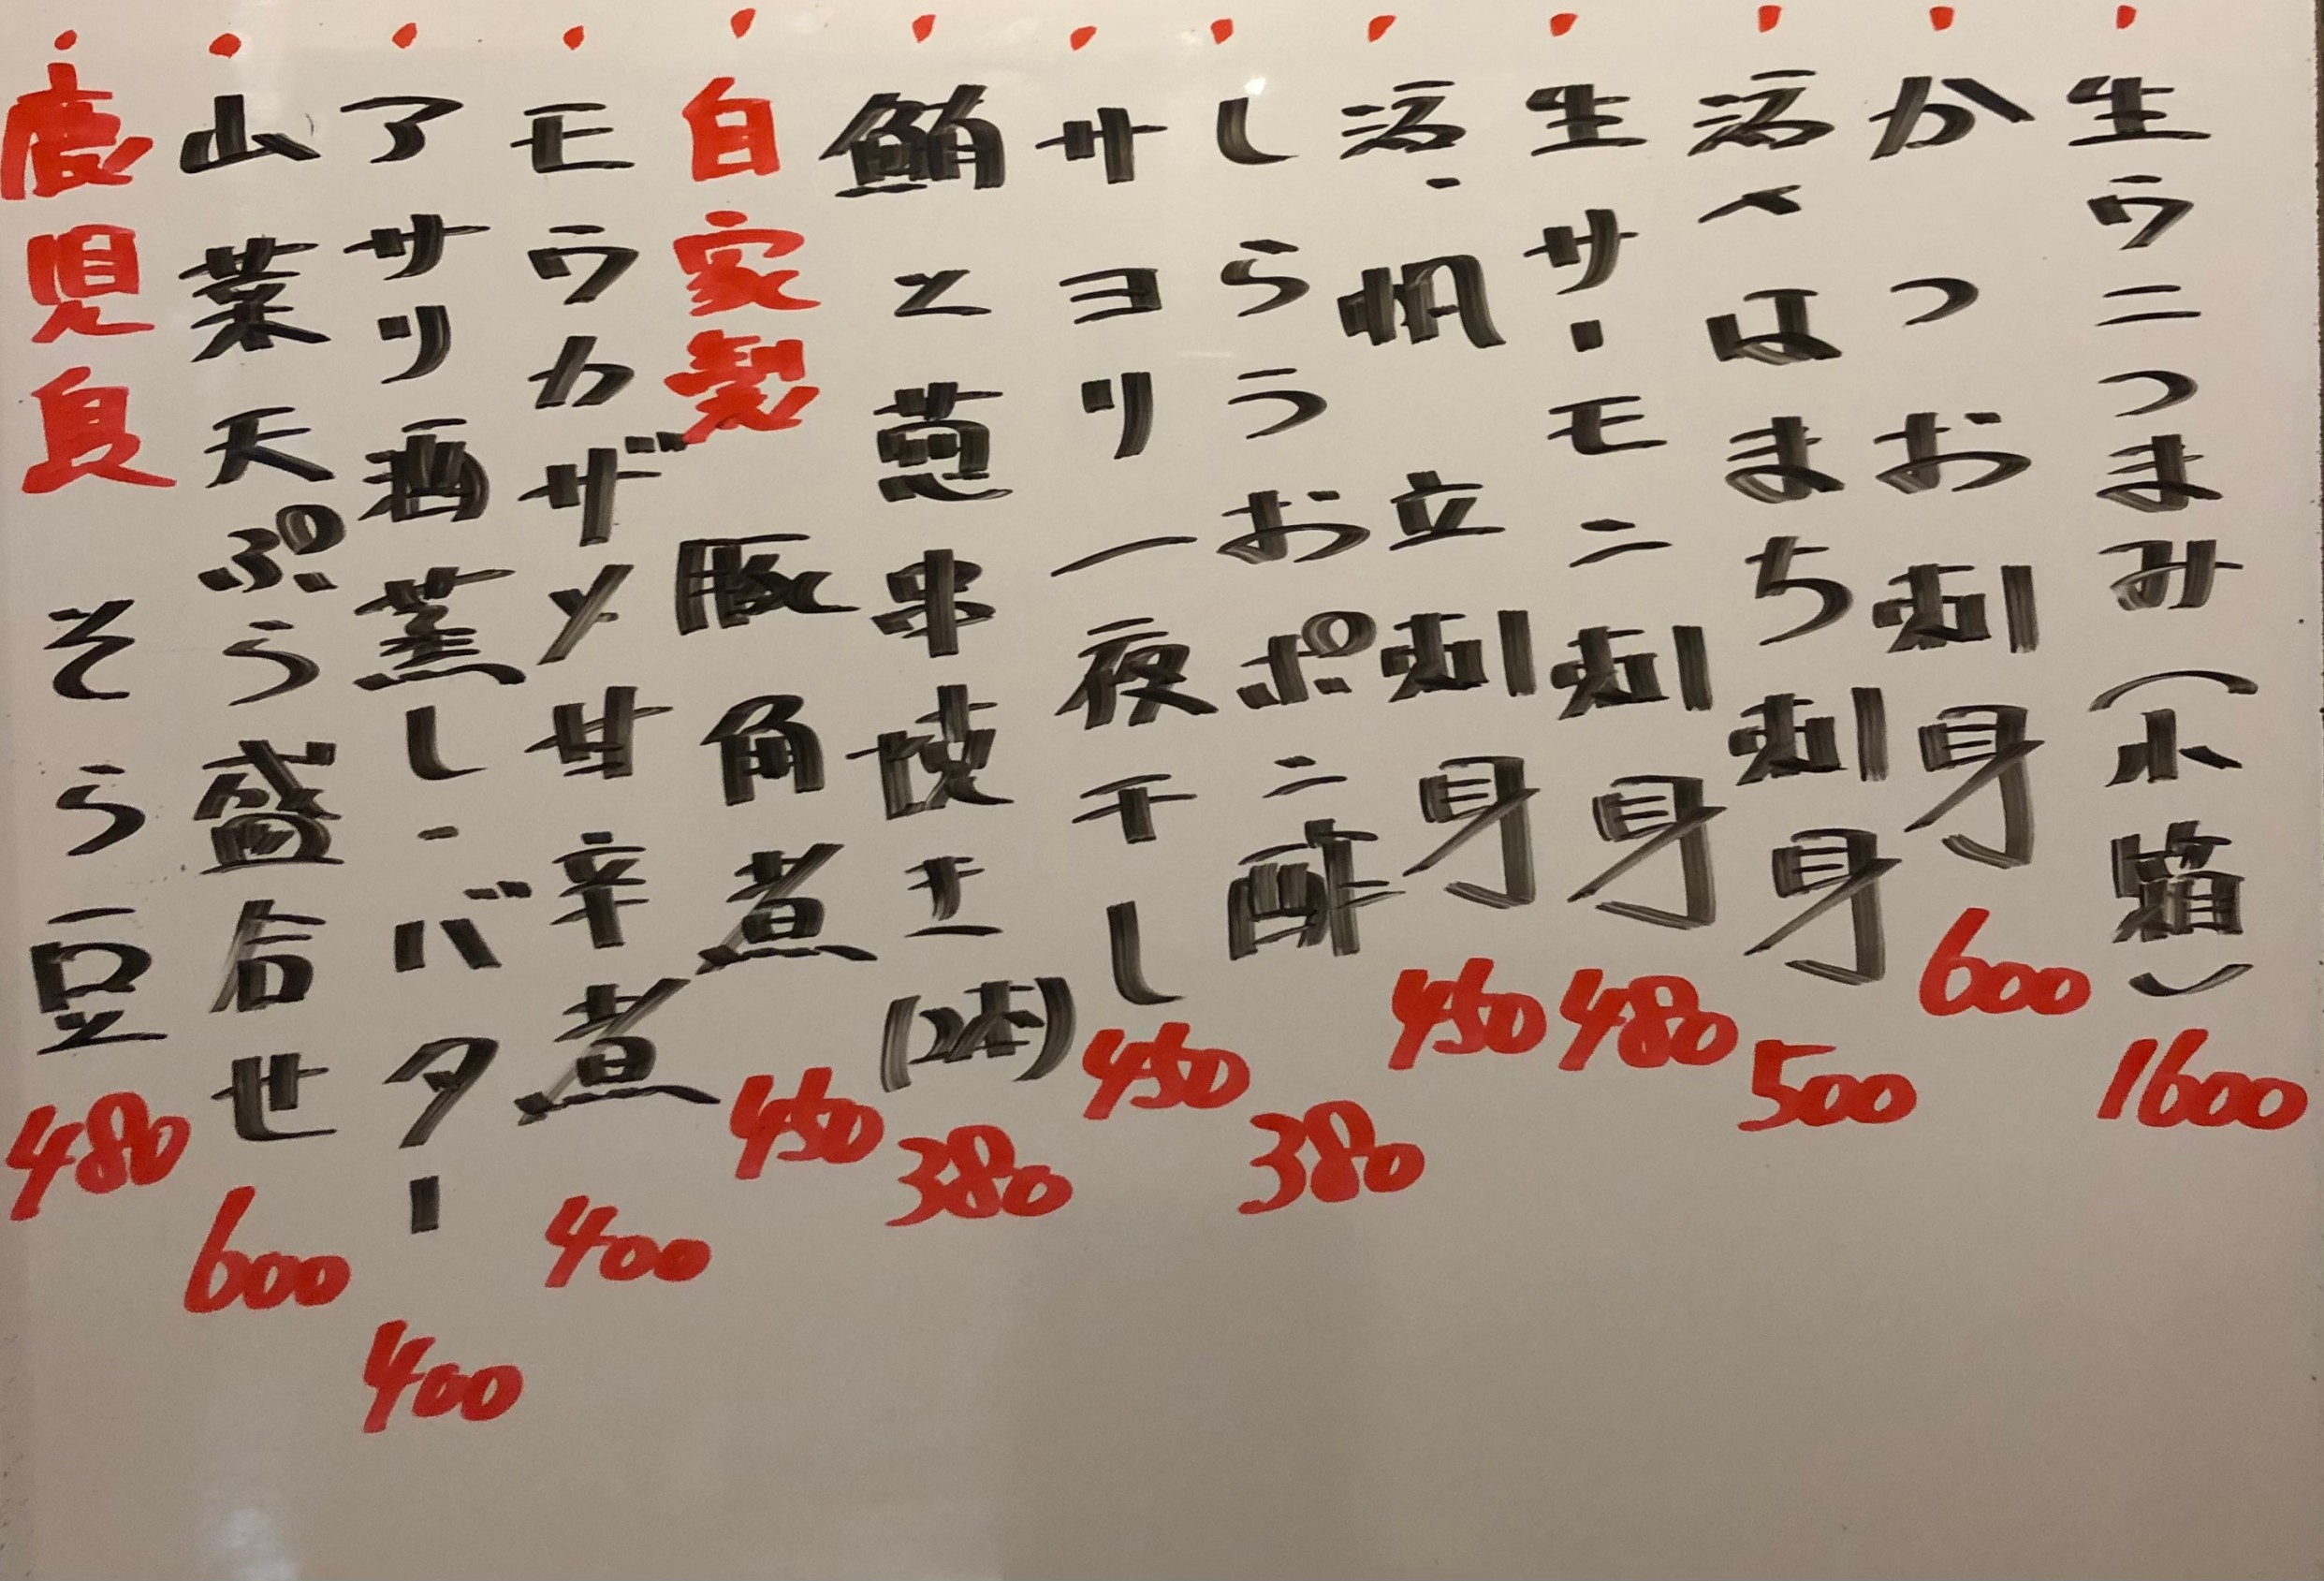 ・生ウニつまみ(小箱) 1600
・かつお刺身 600
・活〆はまち刺身 500
・生サーモン刺身 480
・活・帆立刺身 450
・しらうおポン酢 380
・サヨリ一夜干し 450
・鮪と葱串焼き(2本) 380
・自家製 豚角煮 450
・モウカザメ甘辛煮 400
・アサリ酒蒸し・バター 400
・山菜天ぷら盛合せ 600
・鹿児島 そら豆 480